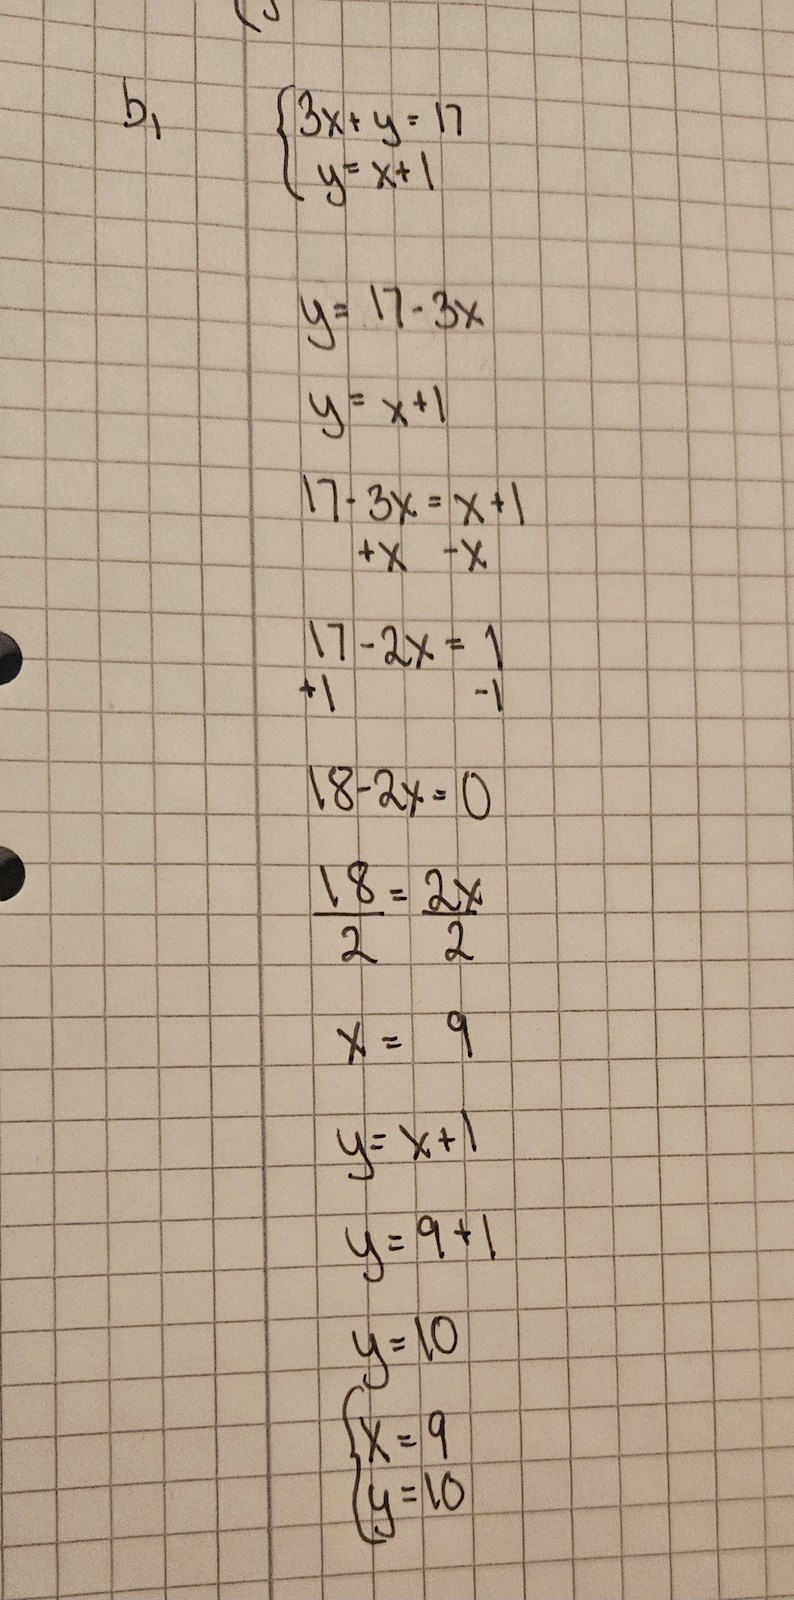 b,
{3x + y = 17
y = x + 1
y = 17 - 3x
y = x + 1
17 - 3x = x + 1
+x -x
17 - 2x = 1
+1 -1
18 - 2x = 0
18/2 = 2x/2
x = 9
y = x + 1
y = 9 + 1
y = 10
{x = 9
y = 10